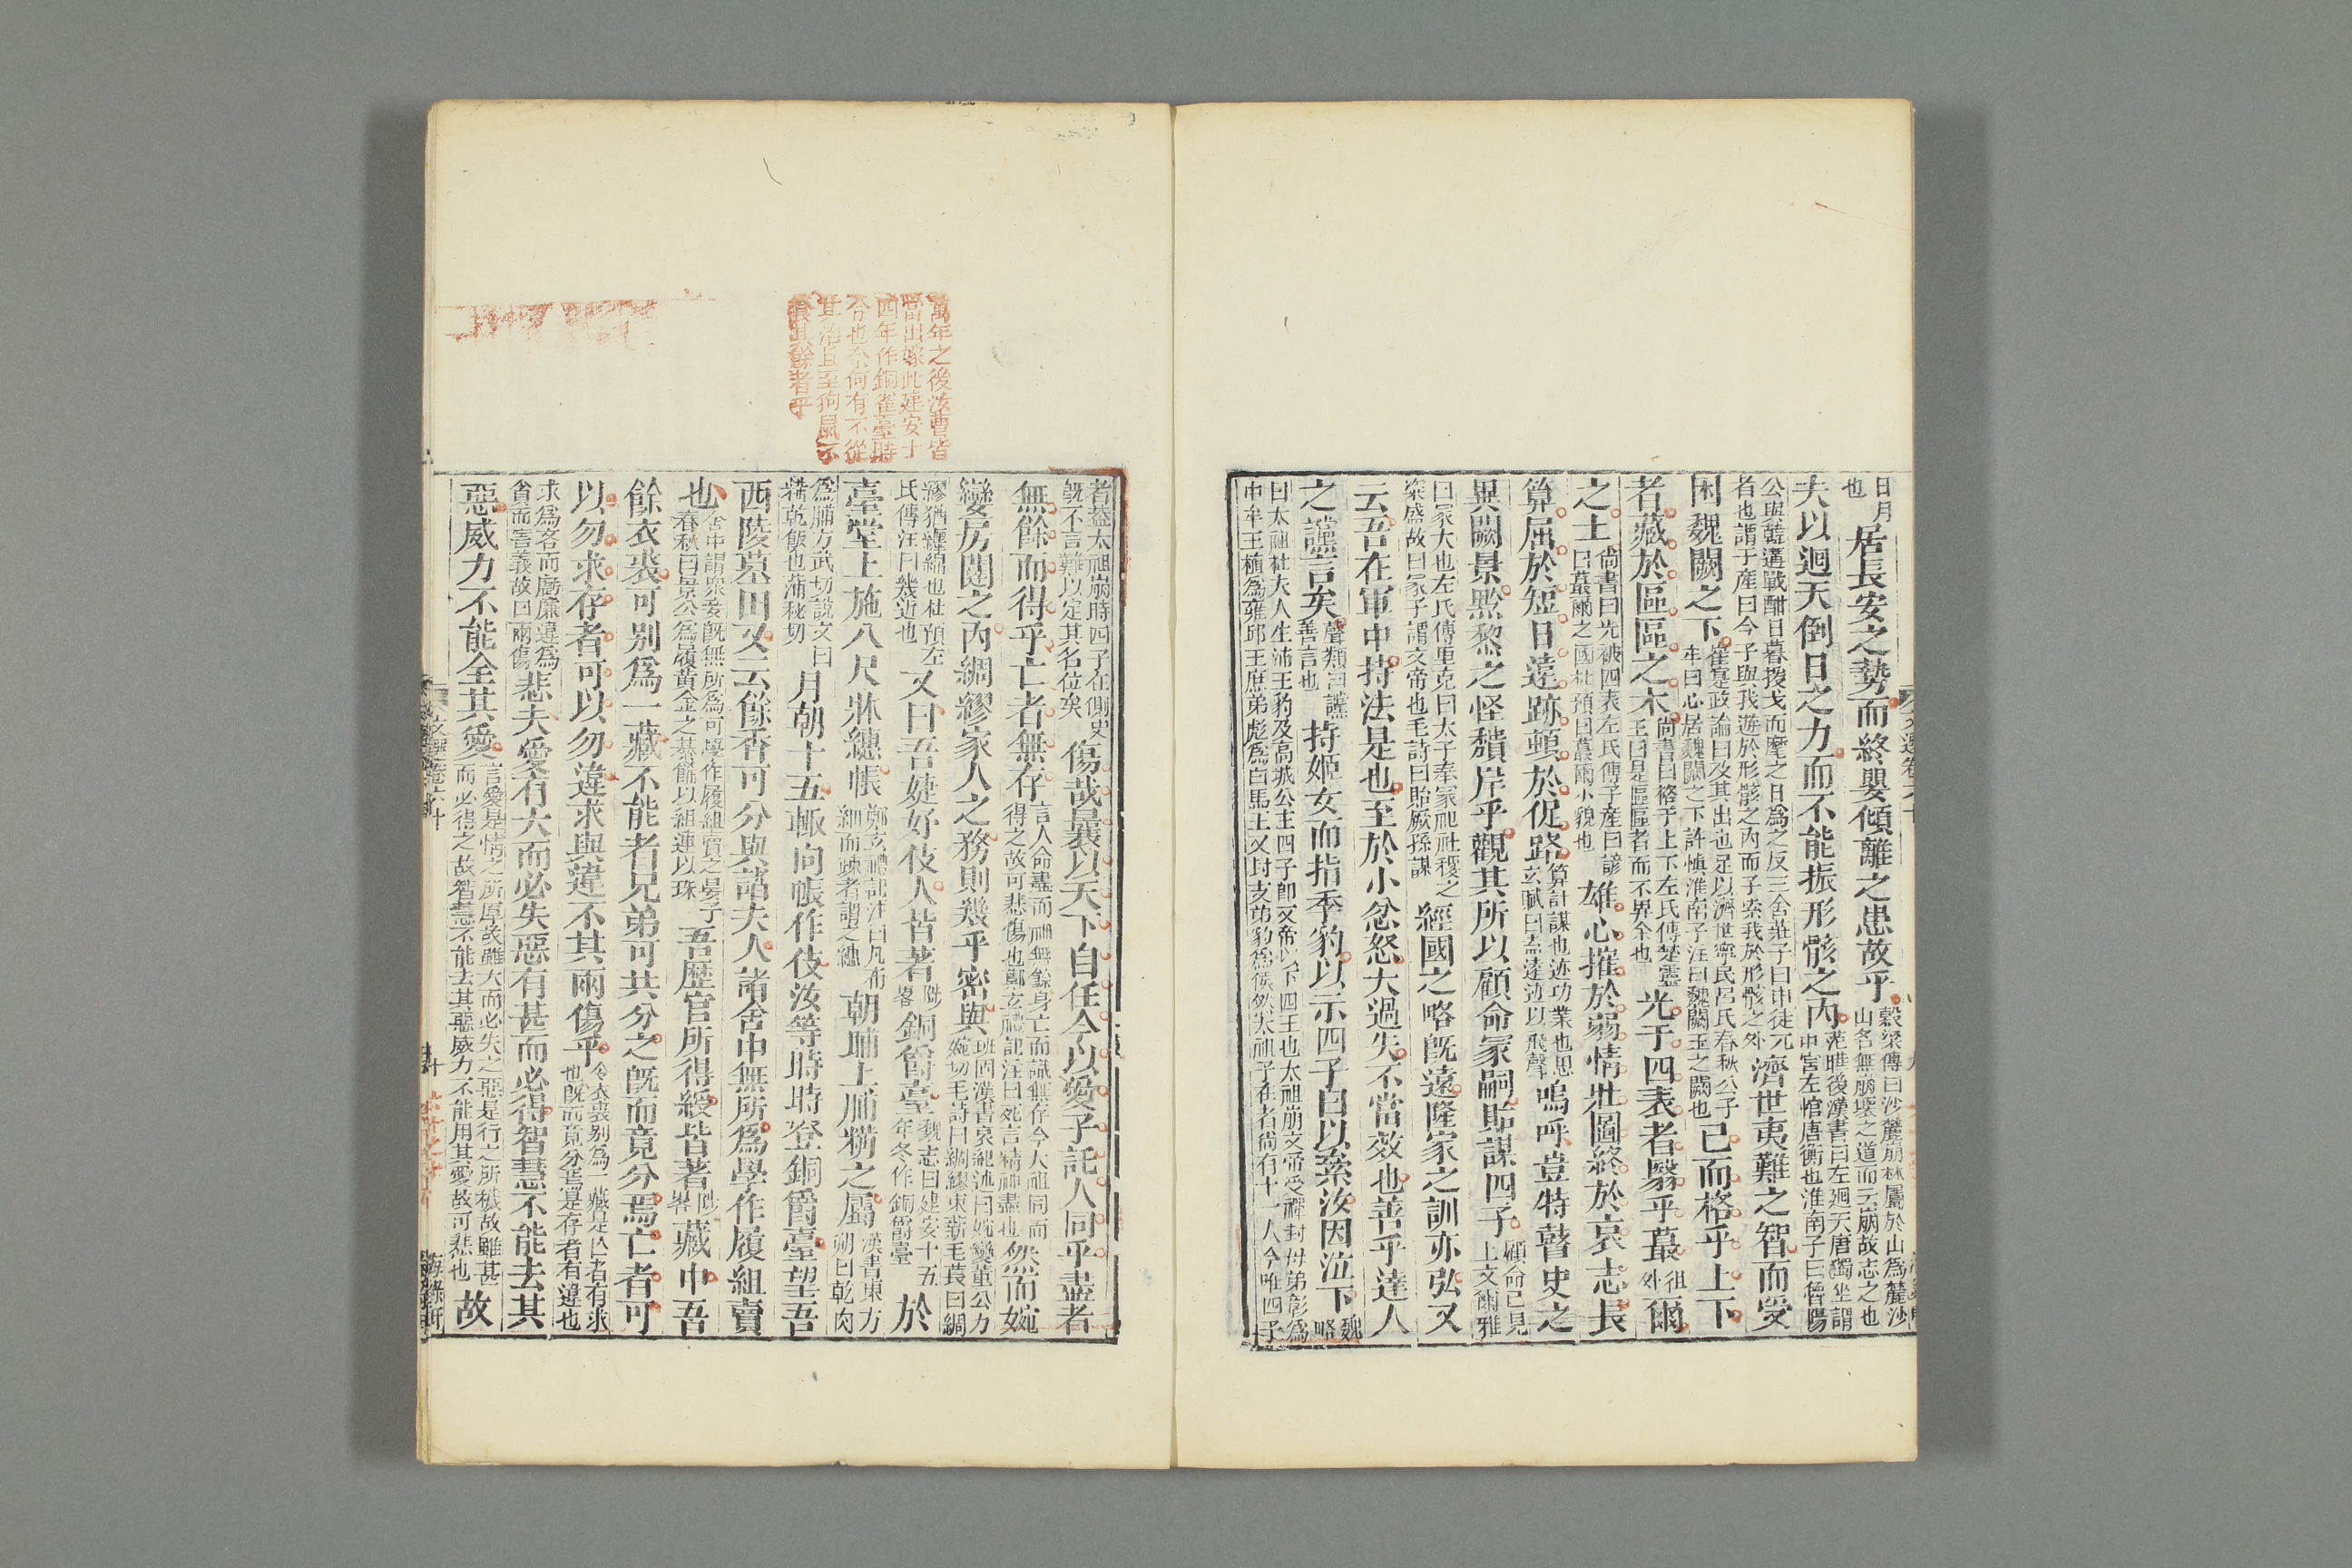 日月
也
居長安之勢而終嬰傾離之患故乎
穀梁傳曰沙麓崩林屬於山爲麓沙
山名無崩壞之道而云崩故志之也
夫以迴天倒日之力而不能振形骸之內
范曄後漢書曰左迴天唐獨坐謂
中官左悺唐衡也淮南子曰魯陽
公與韓遘戰酣日暮援戈而麾之日爲之反三舍莊子曰申徒兀
者也謂子產曰今子與我遊於形骸之內而子索我於形骸之外
濟世夷難之智而受
困魏闕之下
崔寔政論曰及其出也足以濟世寧民呂氏春秋公子
牟曰心居魏闕之下許愼淮南子注曰魏闕王之闕也
已而格乎上下
者藏於區區之木
尚書曰格于上下左氏傳楚靈
王曰是區區者而不畀余也
光于四表者翳乎蕞
徂
外
爾
之土
尚書曰光被四表左氏傳子產曰諺
曰蕞爾之國杜預曰蕞爾小貌也
雄心摧於弱情壯圖終於哀志長
算屈於短日遠跡頓於促路
算計謀也迹功業也思
玄賦曰盍遠迹以飛聲
嗚呼豈特瞽史之
異闕景黔黎之怪頹岸乎觀其所以顧命冢嗣貽謀四子
顧命已見
上文爾雅
曰冢大也左氏傳里克曰太子奉冢祀社稷之
粢盛故曰冢子謂文帝也毛詩曰貽厥孫謀
經國之略旣遠隆家之訓亦弘又
云吾在軍中持法是也至於小忿怒大過失不當效也善乎達人
之讜言矣
聲類曰讜
善言也
持姬女而指季豹以示四子曰以累汝因泣下
魏
略
曰太祖杜夫人生沛王豹及高城公主四子卽文帝以下四王也太祖崩文帝受禪封母弟彰爲
中牟王植爲雍邱王庶弟彪爲白馬王又封支弟豹爲侯然太祖子在者尚有十一人今唯四子
者葢太祖崩時四子在側史
旣不言難以定其名位矣
傷哉曩以天下自任今以愛子託人同乎盡者
無餘而得乎亡者無存
言人命盡而神無餘身亡而識無存今太祖同而
得之故可悲傷也鄭玄禮記注曰死言精神盡也
然而婉
孌房闥之內綢繆家人之務則幾乎密與
班固漢書哀紀述曰婉孌董公力
婉切毛詩曰綢繆束薪毛萇曰綢
繆猶纏綿也杜預左
氏傳注曰幾近也
又曰吾婕妤伎人皆著
陟
畧
銅爵臺
魏志曰建安十五
年冬作銅爵臺
於
臺堂上施八尺牀繐帳
鄭玄禮記注曰凡布
細而疎者謂之繐
朝晡上脯糒之屬
漢書東方
朔曰乾肉
爲脯方武切說文曰
糒乾飯也蒲秘切
月朝十五輒向帳作伎汝等時時登銅爵臺望吾
西陵墓田又云餘香可分與諸夫人諸舍中無所爲學作履組賣
也
舍中謂衆妾旣無所爲可學作履組賣之晏子
春秋曰景公爲履黃金之綦飾以組連以珠
吾歷官所得綬皆著
陟
畧
藏中吾
餘衣裘可別爲一藏不能者兄弟可共分之旣而竟分焉亡者可
以勿求存者可以勿違求與違不其兩傷乎
令衣裘別爲一藏是亡者有求
也旣而竟分焉是存者有違也
求爲吝而虧廉違爲
貪而害義故曰兩傷
悲夫愛有大而必失惡有甚而必得智慧不能去其
惡威力不能全其愛
言愛是情之所厚故雖大而必失之惡是行之所穢故雖甚
而必得之故智慧不能去其惡威力不能用其愛故可悲也
故
萬年之後汝曹皆
當出嫁此建安十
四年作銅雀臺時
令也奈何有不從
其治且至狗鼠不
食其餘者乎